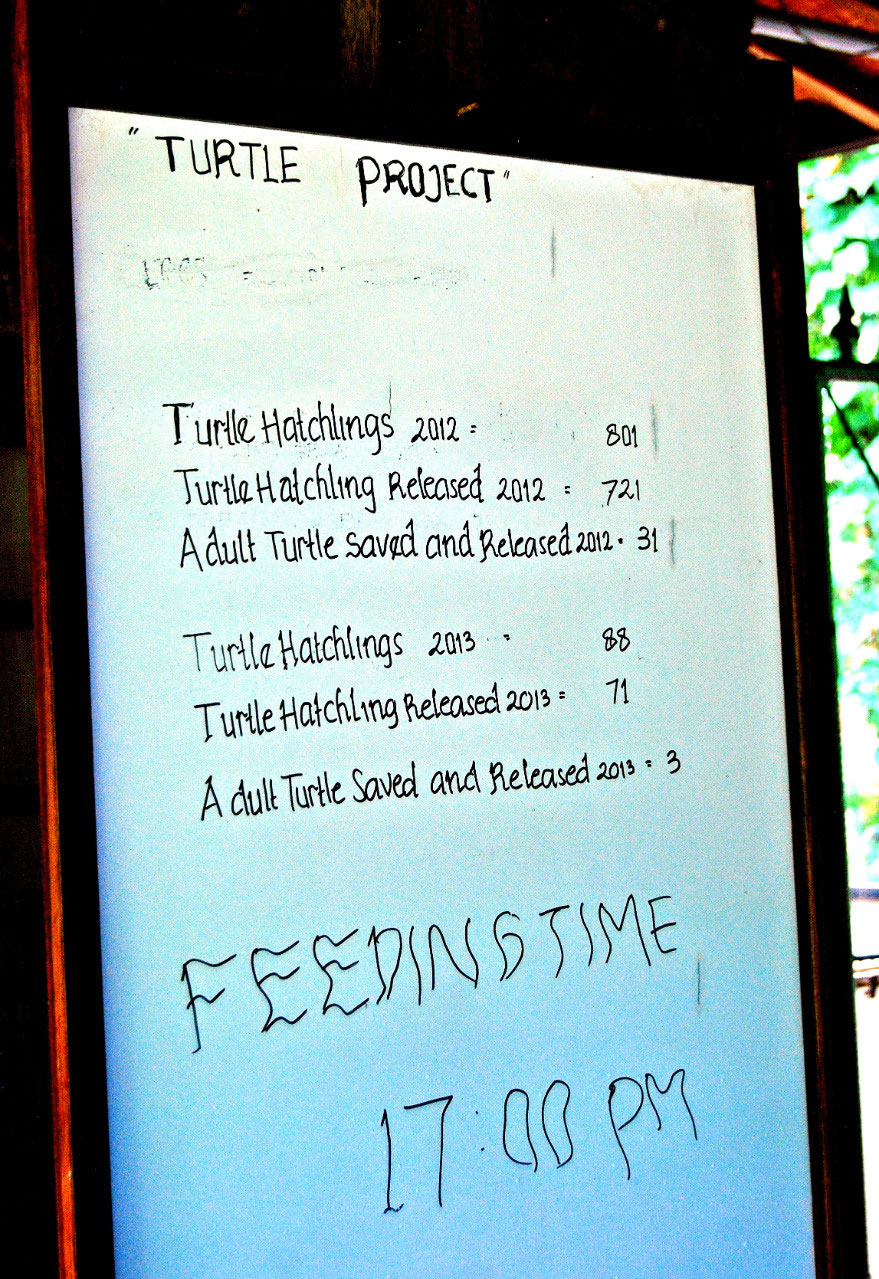 " TURTLE PROJECT "
Turtle Hatchlings 2012 = 801
Turtle Hatchling Released 2012 = 721
Adult Turtle Saved and Released 2012 = 31
Turtle Hatchlings 2013 = 88
Turtle Hatchling Released 2013 = 71
Adult Turtle Saved and Released 2013 = 3
FEEDING TIME
17:00 PM